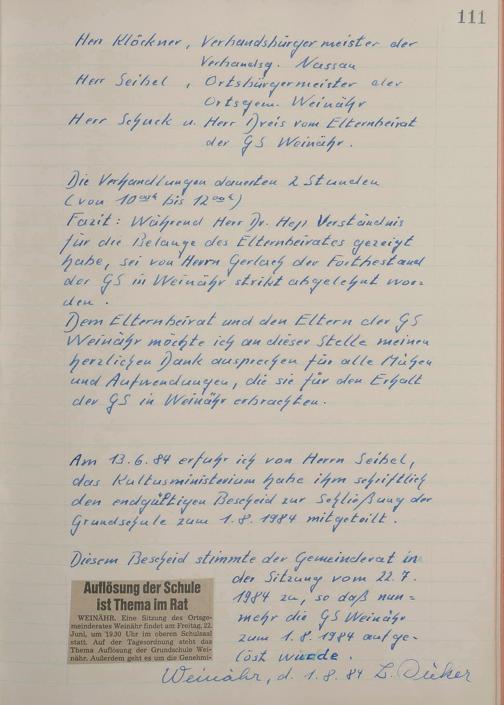 111
Herr Klöckner, Verbandsbürgermeister der
Verbandsg. Nassau
Herr Seibel, Ortsbürgermeister der
Ortsgem. Weinähr
Herr Schuck u. Herr Dreis vom Elternbeirat
der GS Weinähr.
Die Verhandlungen dauerten 2 Stunden
(von 10 00 h bis 12 00 h)
Fazit: Während Herr Dr. Hep Verständnis
für die Belange des Elternbeirates gezeigt
habe, sei von Herrn Gerlach der Fortbestand
der GS in Weinähr strikt abgelehnt wor-
den.
Dem Elternbeirat und den Eltern der GS
Weinähr möchte ich an dieser Stelle meinen
herzlichen Dank aussprechen für alle Mühen
und Aufwendungen, die sie für den Erhalt
der GS in Weinähr erbrachten.
Am 13.6.84 erfuhr ich von Herrn Seibel,
das Kultusministerium habe ihm schriftlich
den endgültigen Bescheid zur Schließung der
Grundschule zum 1.8.1984 mitgeteilt.
Diesem Bescheid stimmte der Gemeinderat in
der Sitzung vom 22.7.
1984 zu, so daß nun=
mehr die GS Weinähr
zum 1.8.1984 aufge-
löst wurde.
Auflösung der Schule
ist Thema im Rat
WEINÄHR. Eine Sitzung des Ortsge-
meinderates Weinähr findet am Freitag, 22.
Juni, um 19.30 Uhr im oberen Schulsaal
statt. Auf der Tagesordnung steht das
Thema Auflösung der Grundschule Wei-
nähr. Außerdem geht es um die Genehmi-
Weinähr, d. 1.8.84